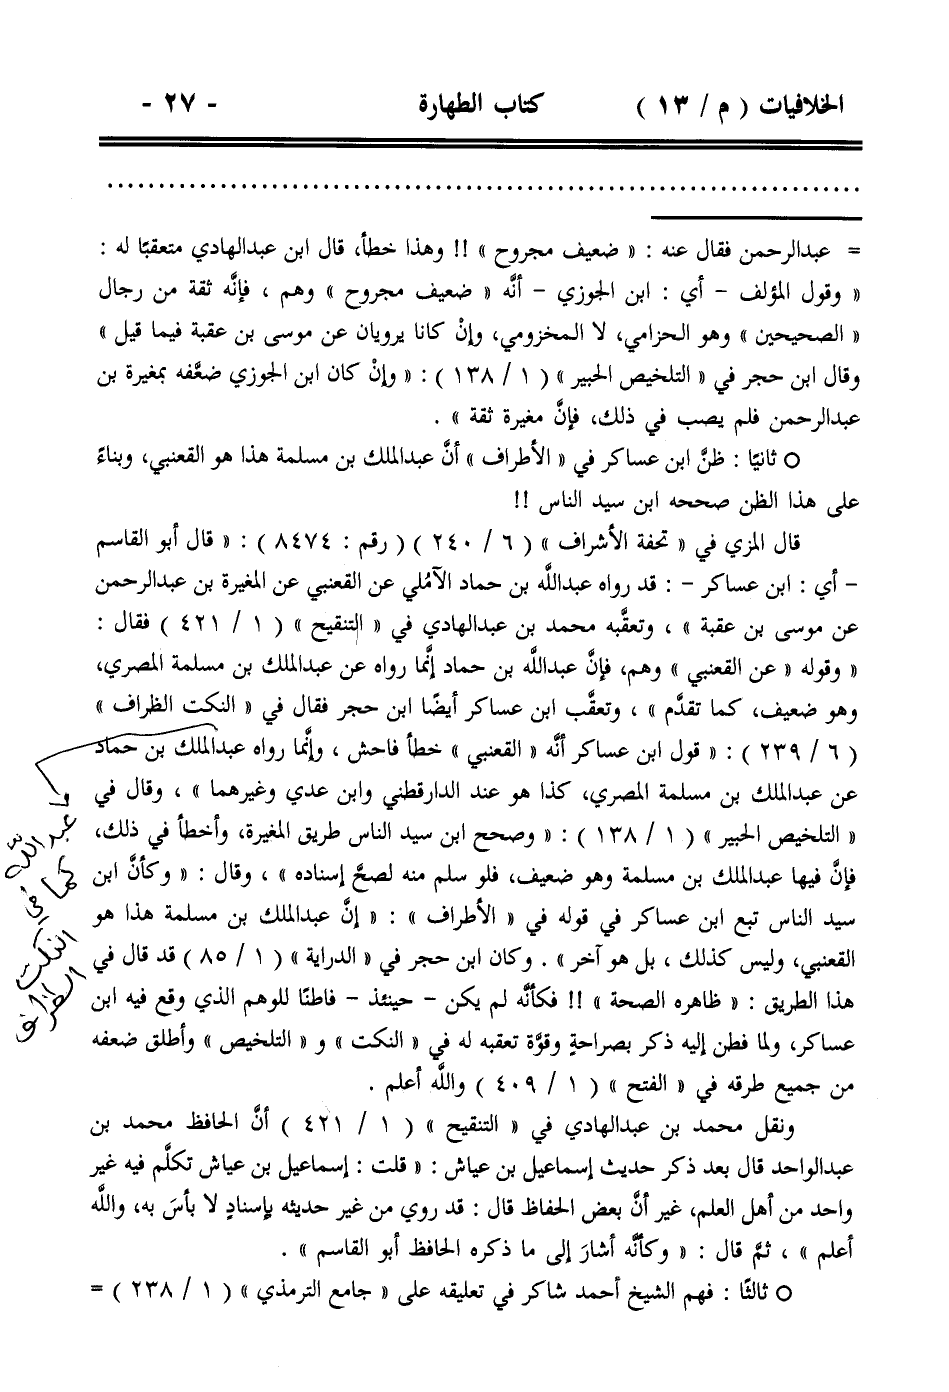 الخلافيات ( م / ١٣ ) كتاب الطهارة - ٢٧ -
= عبدالرحمن فقال عنه : « ضعيف مجروح » !! وهذا خطأ، قال ابن عبدالهادي متعقبًا له :
« وقول المؤلف - أي : ابن الجوزي - أنَّه « ضعيف مجروح » وهم ، فإنَّه ثقة من رجال
« الصحيحين » وهو الحزامي، لا المخزومي، وإنْ كانا يرويان عن موسى بن عقبة فيما قيل »
وقال ابن حجر في « التلخيص الحبير » ( ١ / ١٣٨ ) : « وإنْ كان ابن الجوزي ضعَّفه بمغيرة بن
عبدالرحمن فلم يصب في ذلك، فإنَّ مغيرة ثقة » .
○ ثانيًا : ظنَّ ابن عساكر في « الأطراف » أنَّ عبدالملك بن مسلمة هذا هو القعنبي، وبناءً
على هذا الظن صححه ابن سيد الناس !!
قال المزي في « تحفة الأشراف » ( ٦ / ٢٤٠ ) ( رقم : ٨٤٧٤ ) : « قال أبو القاسم
- أي : ابن عساكر - : قد رواه عبداللَّه بن حماد الآمُلي عن القعنبي عن المغيرة بن عبدالرحمن
عن موسى بن عقبة » ، وتعقَّبه محمد بن عبدالهادي في « التنقيح » ( ١ / ٤٢١ ) فقال :
« وقوله « عن القعنبي » وهم، فإنَّ عبداللَّه بن حماد إنَّما رواه عن عبدالملك بن مسلمة المصري،
وهو ضعيف، كما تقدَّم » ، وتعقَّب ابن عساكر أيضًا ابن حجر فقال في « النكت الظراف »
( ٦ / ٢٣٩ ) : « قول ابن عساكر أنَّه « القعنبي » خطأ فاحش ، وإنَّما رواه عبدالملك بن حماد
عن عبدالملك بن مسلمة المصري، كذا هو عند الدارقطني وابن عدي وغيرهما » ، وقال في
« التلخيص الحبير » ( ١ / ١٣٨ ) : « وصحح ابن سيد الناس طريق المغيرة، وأخطأ في ذلك،
فإنَّ فيها عبدالملك بن مسلمة وهو ضعيف، فلو سلم منه لصحَّ إسناده » ، وقال : « وكأنَّ ابن
سيد الناس تبع ابن عساكر في قوله في « الأطراف » : « إنَّ عبدالملك بن مسلمة هذا هو
القعنبي، وليس كذلك ، بل هو آخر » . وكان ابن حجر في « الدراية » ( ١ / ٨٥ ) قد قال في
هذا الطريق : « ظاهره الصحة » !! فكأنَّه لم يكن - حينئذ - فاطنًا للوهم الذي وقع فيه ابن
عساكر، ولما فطن إليه ذكر بصراحةٍ وقوَّة تعقبه له في « النكت » و « التلخيص » وأطلق ضعفه
من جميع طرقه في « الفتح » ( ١ / ٤٠٩ ) واللَّه أعلم .
ونقل محمد بن عبدالهادي في « التنقيح » ( ١ / ٤٢١ ) أنَّ الحافظ محمد بن
عبدالواحد قال بعد ذكر حديث إسماعيل بن عياش : « قلت : إسماعيل بن عياش تكلَّم فيه غير
واحد من أهل العلم، غير أنَّ بعض الحفاظ قال : قد روي من غير حديثه بإسنادٍ لا بأسَ به، واللَّه
أعلم » ، ثمَّ قال : « وكأنَّه أشارَ إلى ما ذكره الحافظ أبو القاسم » .
○ ثالثًا : فهم الشيخ أحمد شاكر في تعليقه على « جامع الترمذي » ( ١ / ٢٣٨ ) =
عبد اللّه
كما في
النكت
الظراف